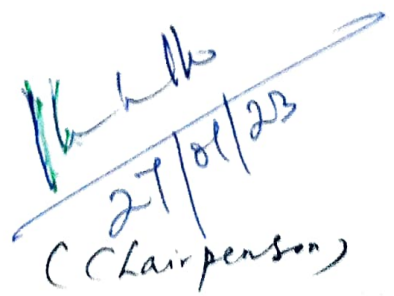 27/01/23
(Chairpenson)